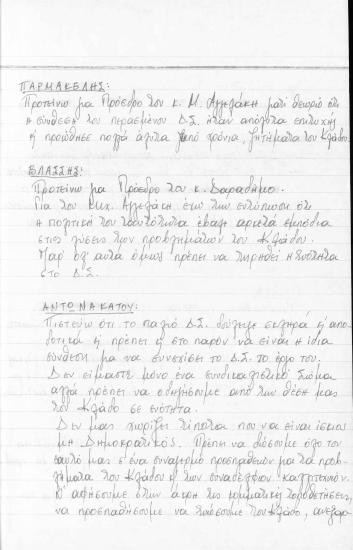 ΠΑΡΜΑΚΕΛΗΣ:
Προτείνω για Πρόεδρο τον κ. Μ. Αγγελάκη γιατί θεωρώ ότι
η σύνθεση του περασμένου Δ.Σ. ήταν απόλυτα επιτυχής
ή προώθησε πολλά άλυτα από χρόνια, ζητήματα του Κλάδου.
ΒΛΑΣΣΗΣ:
Προτείνω για Πρόεδρο τον κ. Σαραδήμο.
Για τον κύκ. Αγγελάκη έχω την εντύπωση ότι
η πολιτική του ταυτότητα έβαλε αρκετά εμπόδια
στις λύσεις των προβλημάτων του Κλάδου.
Παρ' όλ' αυτά όμως πρέπει να τηρηθεί η ενότητα
στο Δ.Σ.
ΑΝΤΩΝΑΚΑΤΟΥ:
Πιστεύω ότι το παλιό Δ.Σ. δούλεψε σκληρά ή απο-
δοτικά ή πρέπει ή στο παρόν να είναι η ίδια
σύνθεση για να συνεχίσει το Δ.Σ. το έργο του.
Δεν είμαστε μόνο ένα συνδικαλιστικό Σώμα
αλλά πρέπει να οδηγήσουμε από την θέση μας
τον Κλάδο σε ενότητα.
Δεν μας χωρίζει τίποτα που να είναι
μη Δημοκρατικό. Πρέπει να δώσουμε όλο τον
εαυτό μας σ' ένα συναγερμό προσπαθειών για τα προβ-
λήματα του Κλάδου ή των συναδέλφων καλλιτεχνών.
Ν' αφήσουμε στην άκρη τις κομματικές τοποθετήσεις,
να προσπαθήσουμε να ενώσουμε τον Κλάδο, ανεξαρ-